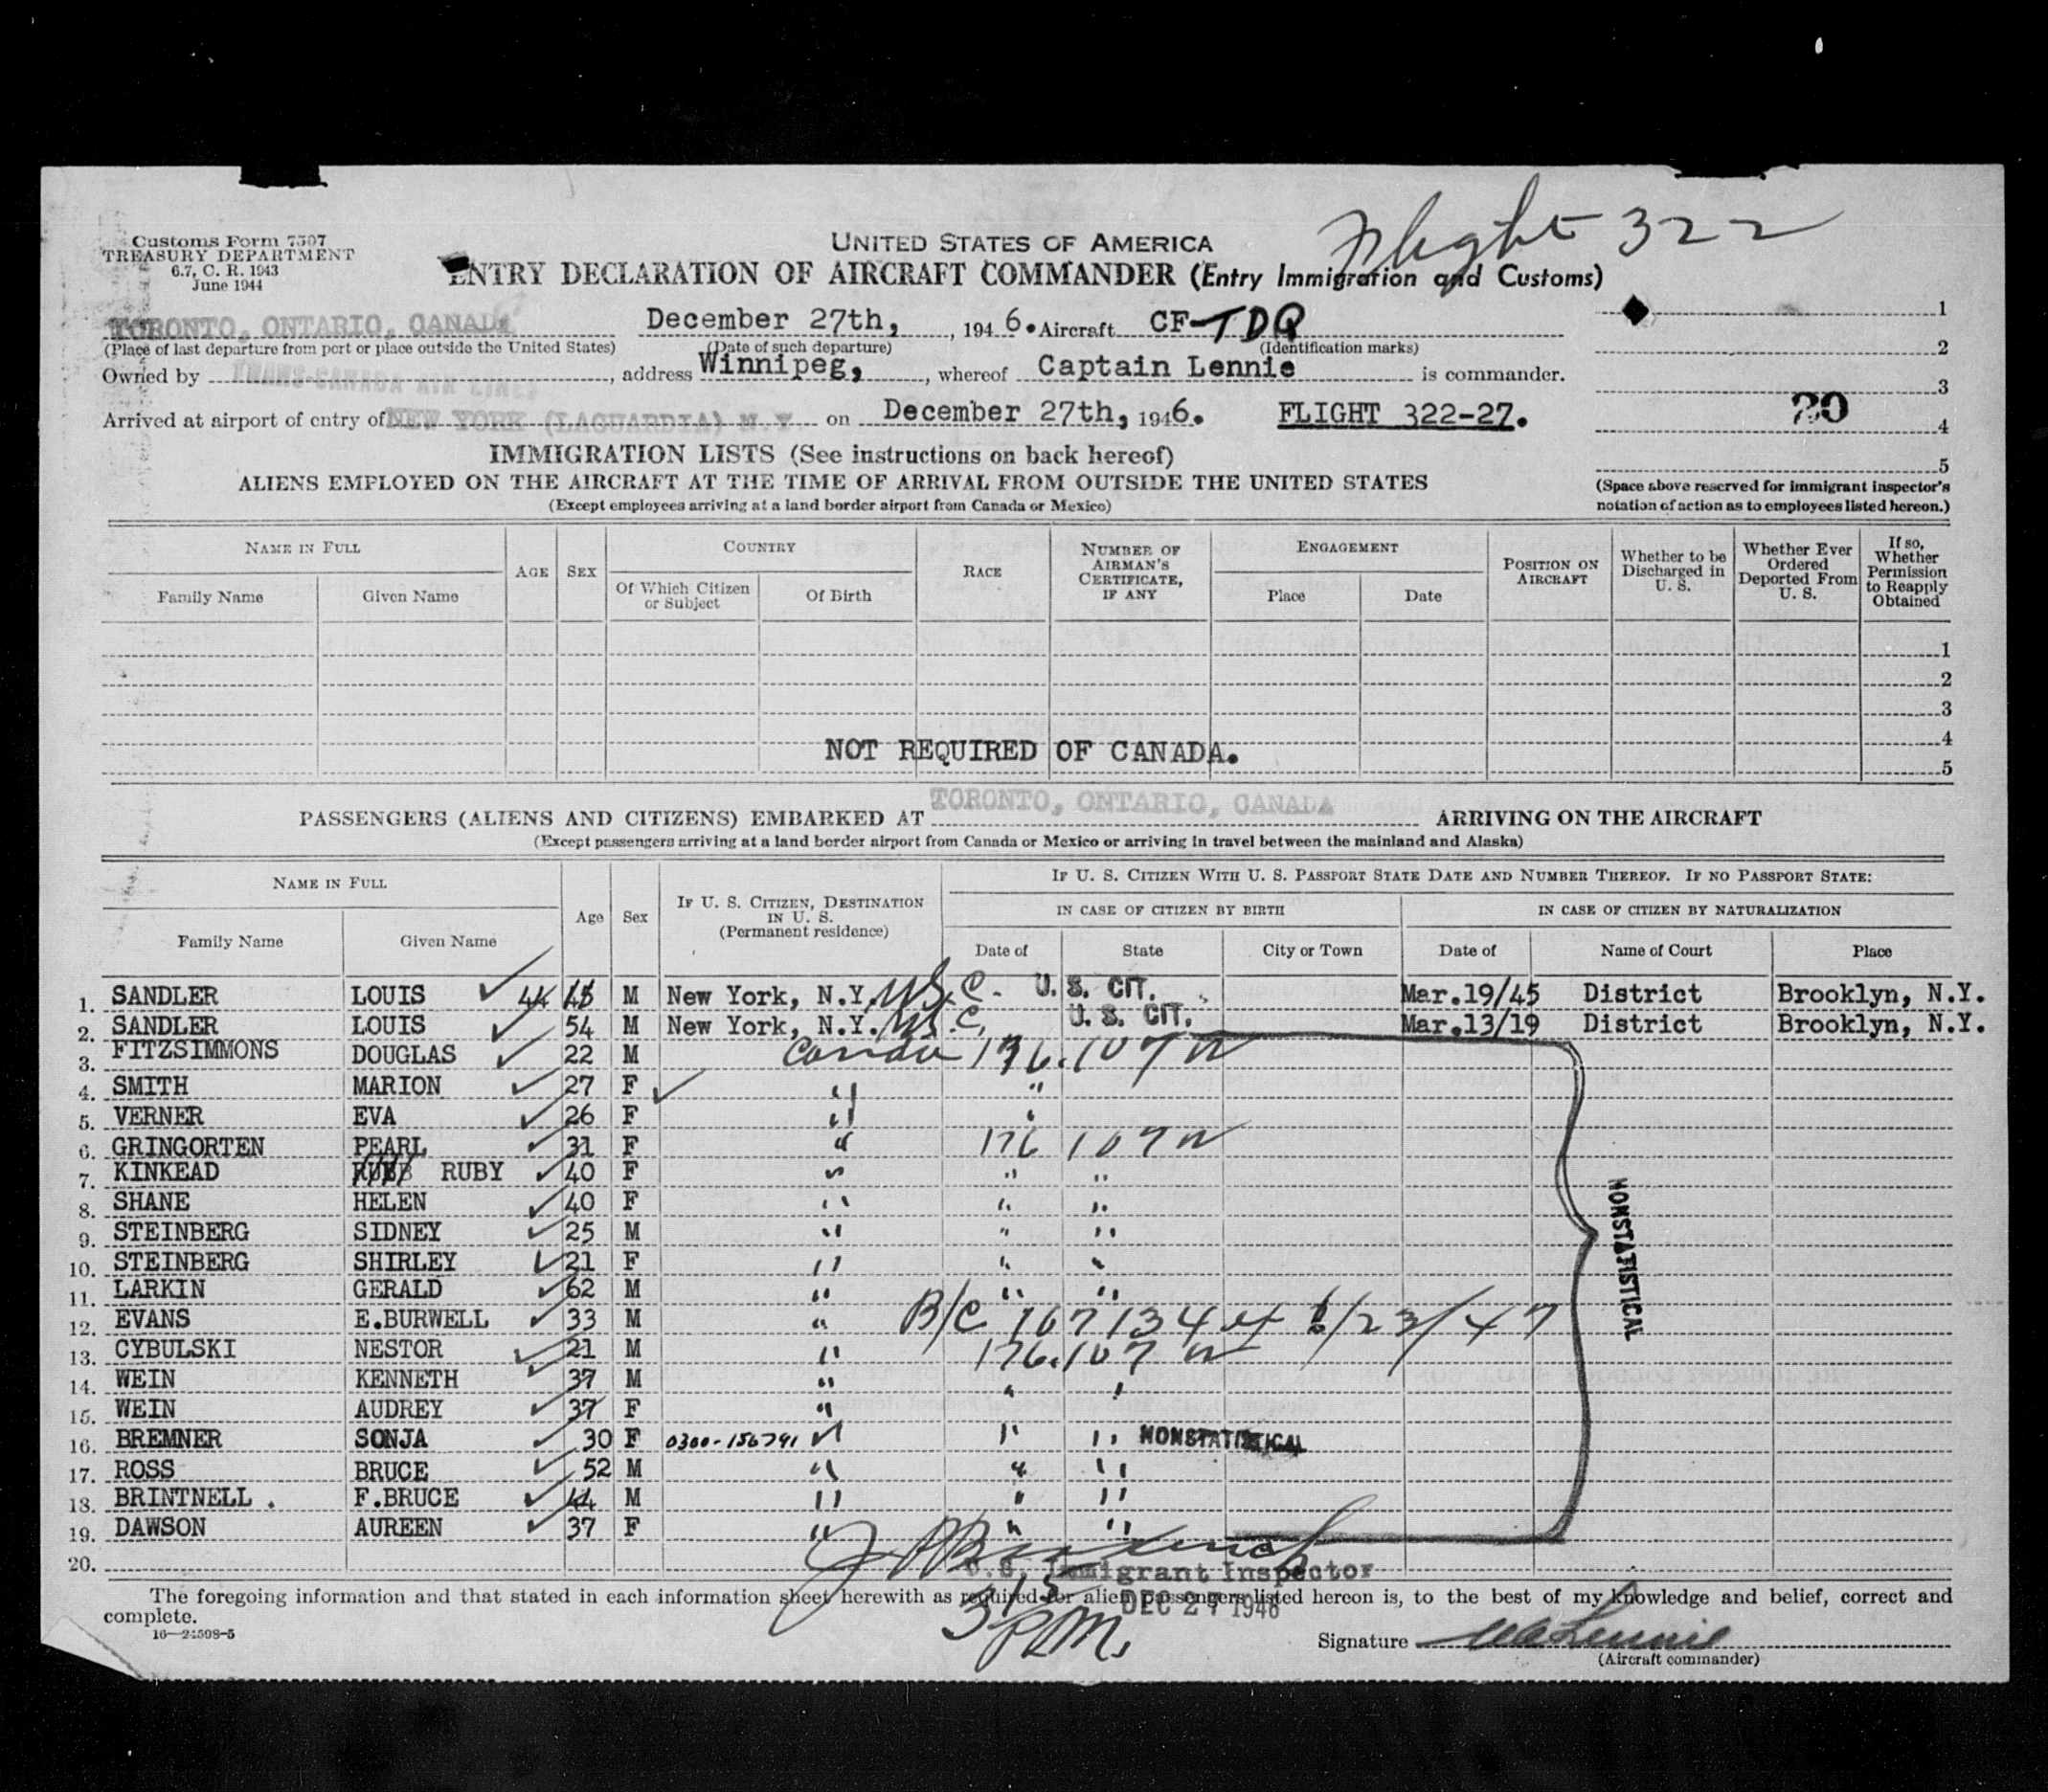 Flight 322
Customs Form 7507
TREASURY DEPARTMENT
6.7, C. R. 1943
June 1944
UNITED STATES OF AMERICA
ENTRY DECLARATION OF AIRCRAFT COMMANDER (Entry Immigration and Customs)
TORONTO, ONTARIO, CANADA December 27th, , 194 6. Aircraft CF-TDQ 1
(Place of last departure from port or place outside the United States) (Date of such departure) (Identification marks) 2
Owned by TRANS-CANADA AIR LINES , address Winnipeg, , whereof Captain Lennie is commander. 3
Arrived at airport of entry of NEW YORK (LAGUARDIA) N.Y. on December 27th, 1946. FLIGHT 322-27. 20 4
5
IMMIGRATION LISTS (See instructions on back hereof)
ALIENS EMPLOYED ON THE AIRCRAFT AT THE TIME OF ARRIVAL FROM OUTSIDE THE UNITED STATES
(Except employees arriving at a land border airport from Canada or Mexico)
(Space above reserved for immigrant inspector's
notation of action as to employees listed hereon.)
NAME IN FULL
Family Name Given Name
AGE SEX
COUNTRY
Of Which Citizen or Subject Of Birth
RACE
NUMBER OF AIRMAN'S CERTIFICATE, IF ANY
ENGAGEMENT
Place Date
POSITION ON AIRCRAFT
Whether to be Discharged in U. S.
Whether Ever Ordered Deported From U. S.
If so, Whether Permission to Reapply Obtained
1
2
3
4
NOT REQUIRED OF CANADA.
5
PASSENGERS (ALIENS AND CITIZENS) EMBARKED AT TORONTO, ONTARIO, CANADA ARRIVING ON THE AIRCRAFT
(Except passengers arriving at a land border airport from Canada or Mexico or arriving in travel between the mainland and Alaska)
NAME IN FULL
Family Name Given Name
Age Sex
IF U. S. CITIZEN, DESTINATION IN U. S.
(Permanent residence)
IF U. S. CITIZEN WITH U. S. PASSPORT STATE DATE AND NUMBER THEREOF. IF NO PASSPORT STATE:
IN CASE OF CITIZEN BY BIRTH IN CASE OF CITIZEN BY NATURALIZATION
Date of State City or Town Date of Name of Court Place
1. SANDLER LOUIS 44 M New York, N.Y. U.S.C. U. S. CIT. Mar.19/45 District Brooklyn, N.Y.
2. SANDLER LOUIS 54 M New York, N.Y. U.S.C. U. S. CIT. Mar.13/19 District Brooklyn, N.Y.
3. FITZSIMMONS DOUGLAS 22 M Canada 176.107 W
4. SMITH MARION 27 F " "
5. VERNER EVA 26 F " "
6. GRINGORTEN PEARL 31 F " 176 107 W
7. KINKEAD RUBY 40 F " " "
8. SHANE HELEN 40 F " " "
9. STEINBERG SIDNEY 25 M " " "
10. STEINBERG SHIRLEY 21 F " " "
11. LARKIN GERALD 62 M " " "
12. EVANS E.BURWELL 33 M " B/C
13. CYBULSKI NESTOR 21 M " 176.107 W
14. WEIN KENNETH 37 M " " "
15. WEIN AUDREY 37 F "
16. BREMNER SONJA 30 F 0300-156791 " " " NONSTATISTICAL
17. ROSS BRUCE 52 M " " "
18. BRINTNELL . F.BRUCE 44 M " " "
19. DAWSON AUREEN 37 F " " "
20.
NONSTATISTICAL
U.S. Immigrant Inspector
DEC 27 1946
The foregoing information and that stated in each information sheet herewith as required for alien passengers listed hereon is, to the best of my knowledge and belief, correct and
complete.
16—24598-5
P.M.
Signature Lennie
(Aircraft commander)